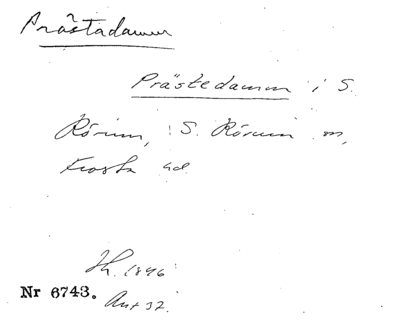 Prästadamm
Prästedamm i S.
Rörum, S. Rörum sn,
Frosta hd.
1846
Nr 6743. Ant 32.